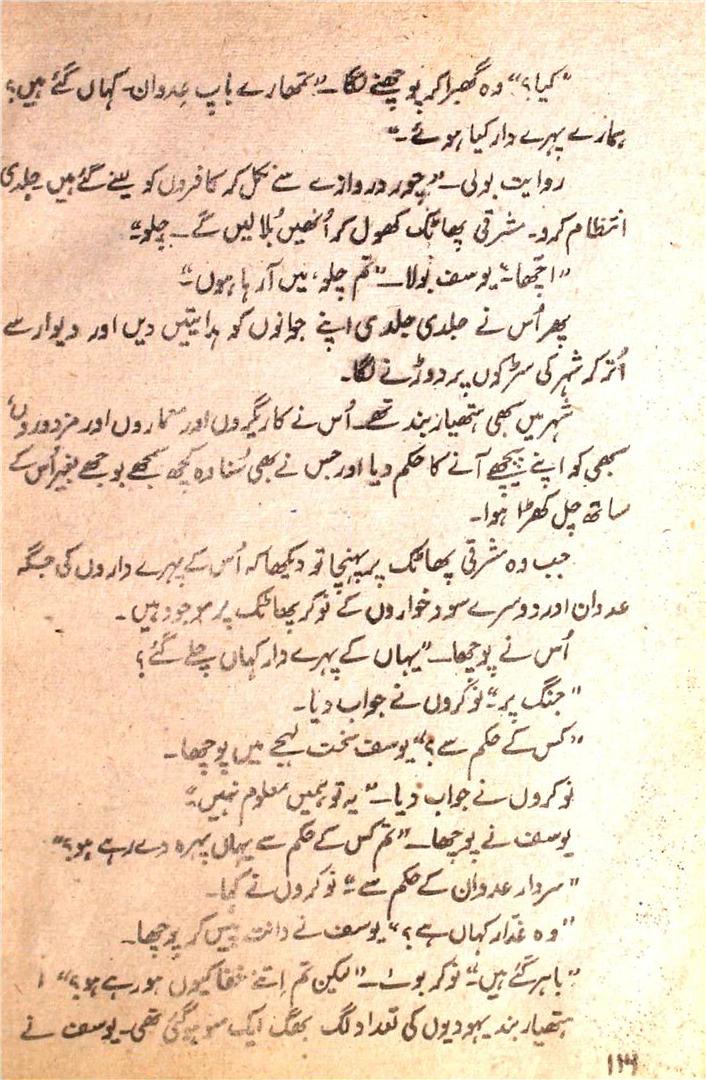 "کیا؟" وہ گھبرا کر پوچھنے لگا۔ "تمھارے باپ عدوان۔ کہاں گئے ہیں؟
ہمارے پہرے دار کیا ہوئے۔"
روایت بولی۔ "چور دروازے سے نکل کر کافروں کو لینے گئے ہیں جلدی
انتظام کرو۔ مشرقی پھاٹک کھول کر اُنھیں بُلا لیں گے۔ چلو۔"
"اچھا۔" یوسف بولا۔ "تم چلو، میں آ رہا ہوں۔"
پھر اُس نے جلدی جلدی اپنے جوانوں کو ہدایتیں دیں اور دیوار سے
اُتر کر شہر کی سڑکوں پر دوڑنے لگا۔
شہر میں بھی ہتھیار بند تھے۔ اُس نے کاریگروں اور معماروں اور مزدوروں،
سبھی کو اپنے پیچھے آنے کا حکم دیا اور جس نے بھی سُنا وہ کچھ سمجھے بوجھے بغیر اُس کے
ساتھ چل کھڑا ہوا۔
جب وہ مشرقی پھاٹک پر پہنچا تو دیکھا کہ اُس کے پہرے داروں کی جگہ
عدوان اور دوسرے سود خواروں کے نوکر پھاٹک پر موجود ہیں۔
اُس نے پوچھا۔ "یہاں کے پہرے دار کہاں چلے گئے؟
"جنگ پر۔" نوکروں نے جواب دیا۔
"کس کے حکم سے؟" یوسف سخت لہجے میں پوچھا۔
نوکروں نے جواب دیا۔ "یہ تو ہمیں معلوم نہیں۔"
یوسف نے پوچھا۔ "تم کس کے حکم سے یہاں پہرہ دے رہے ہو؟"
"سردار عدوان کے حکم سے۔" نوکروں نے کہا۔
"وہ غدّار کہاں ہے؟" یوسف نے دانت پیس کر پوچھا۔
"باہر گئے ہیں۔" نوکر بولے۔ "لیکن تم اِتنے خفا کیوں ہو رہے ہو؟"
ہتھیار بند یہودیوں کی تعداد لگ بھگ ایک سو ہو گئی تھی۔ یوسف نے